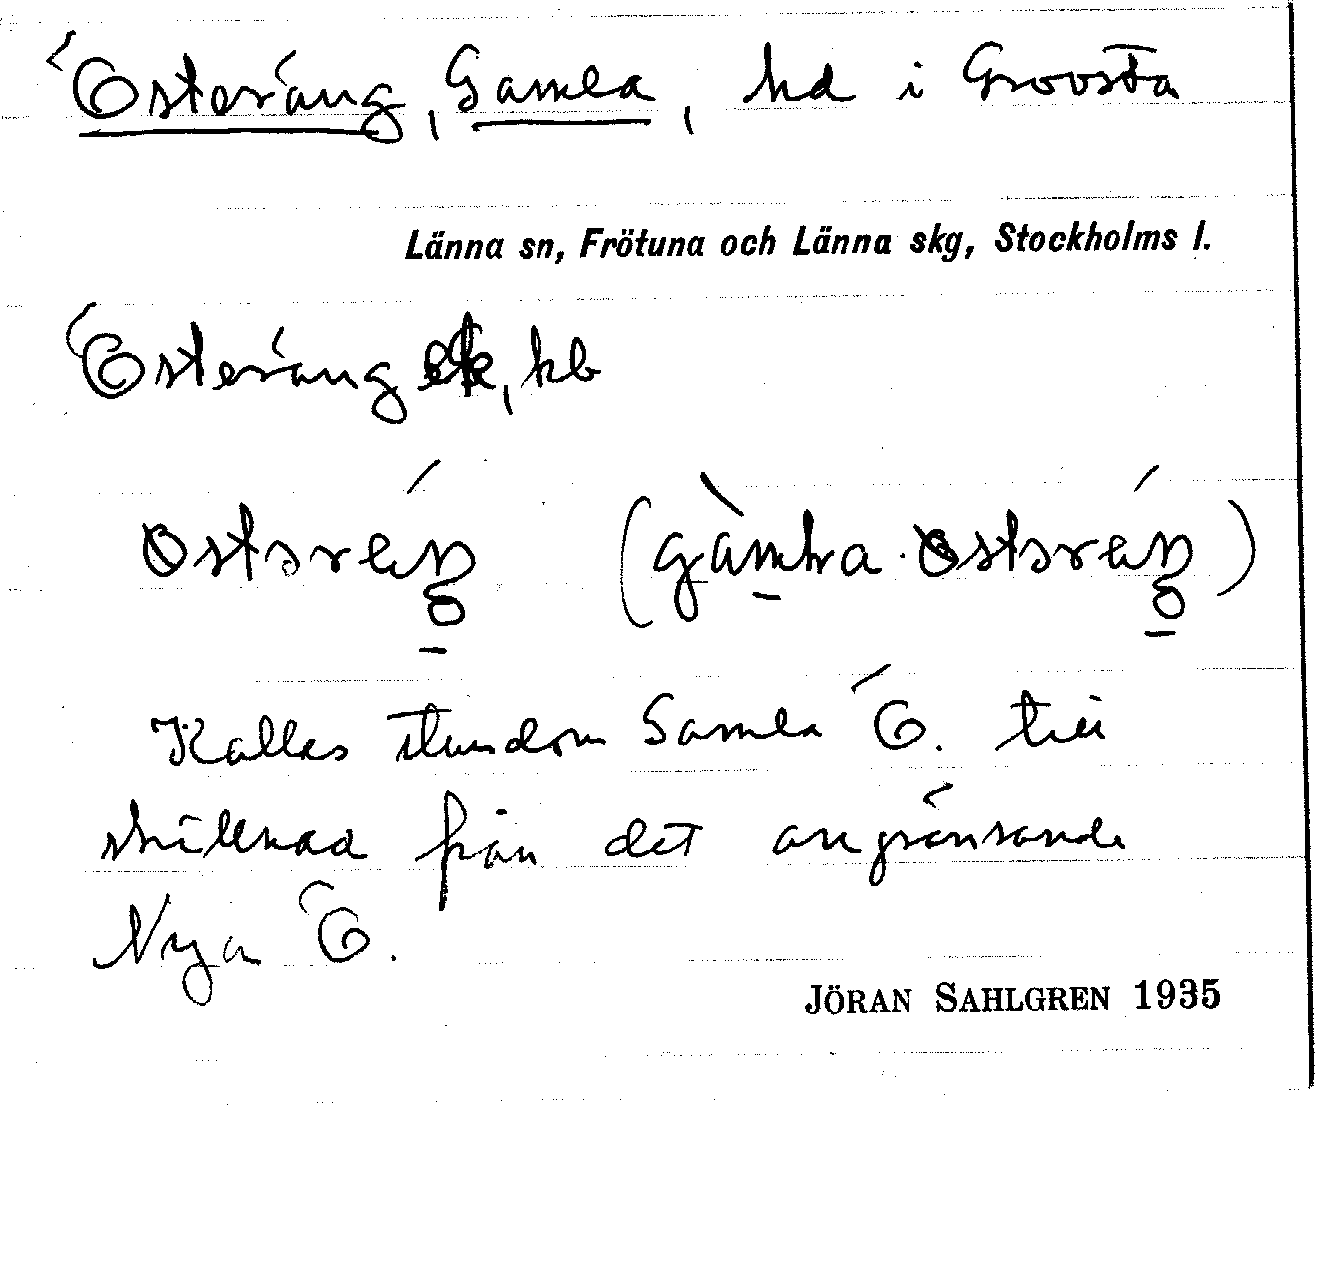 Österäng, Gamla, hd i Grovsta
Länna sn, Frötuna och Länna skg, Stockholms l.
Österäng ek, kb
Kallas stundom Gamla Ö. till
skillnad från det angränsande
Nya Ö.
JÖRAN SAHLGREN 1935